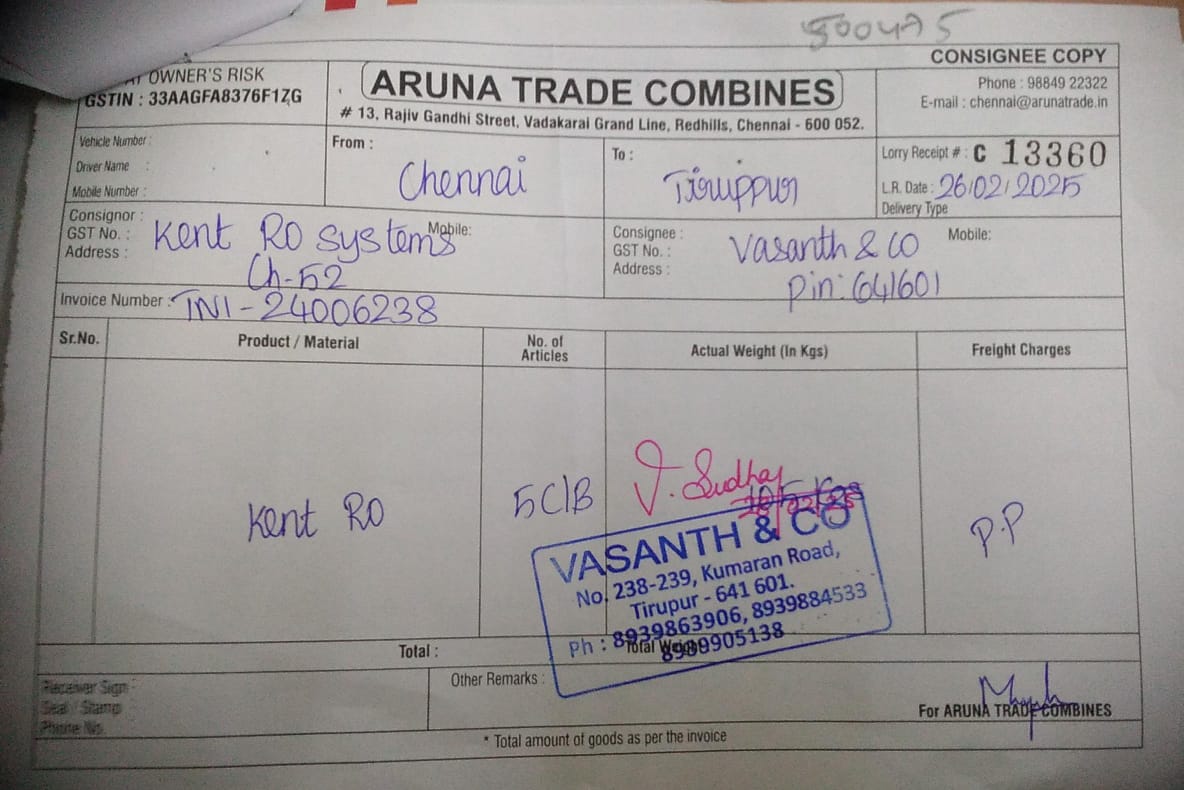 500475
CONSIGNEE COPY
OWNER'S RISK
GSTIN : 33AAGFA8376F1ZG
ARUNA TRADE COMBINES
# 13, Rajiv Gandhi Street, Vadakarai Grand Line, Redhills, Chennai - 600 052.
Phone : 98849 22322
E-mail : chennai@arunatrade.in
Vehicle Number :
Driver Name :
Mobile Number :
From :
Chennai
To :
Tiruppur
Lorry Receipt # : C 13360
L.R. Date : 26/02/2025
Delivery Type
Consignor :
GST No. :
Address :
Kent RO Systems
Mobile:
Ch-52
Consignee :
GST No. :
Address :
Vasanth & CO
Mobile:
Pin: 641601
Invoice Number : TN1-24006238
Sr.No.
Product / Material
No. of
Articles
Actual Weight (In Kgs)
Freight Charges
Kent RO
5 C/B
P.P
VASANTH & CO
No. 238-239, Kumaran Road,
Tirupur - 641 601.
Ph : 8939863906, 8939884533
8939905138
Total :
Total Weight
Receiver Sign
Seal / Stamp
Phone No.
Other Remarks :
For ARUNA TRADE COMBINES
* Total amount of goods as per the invoice